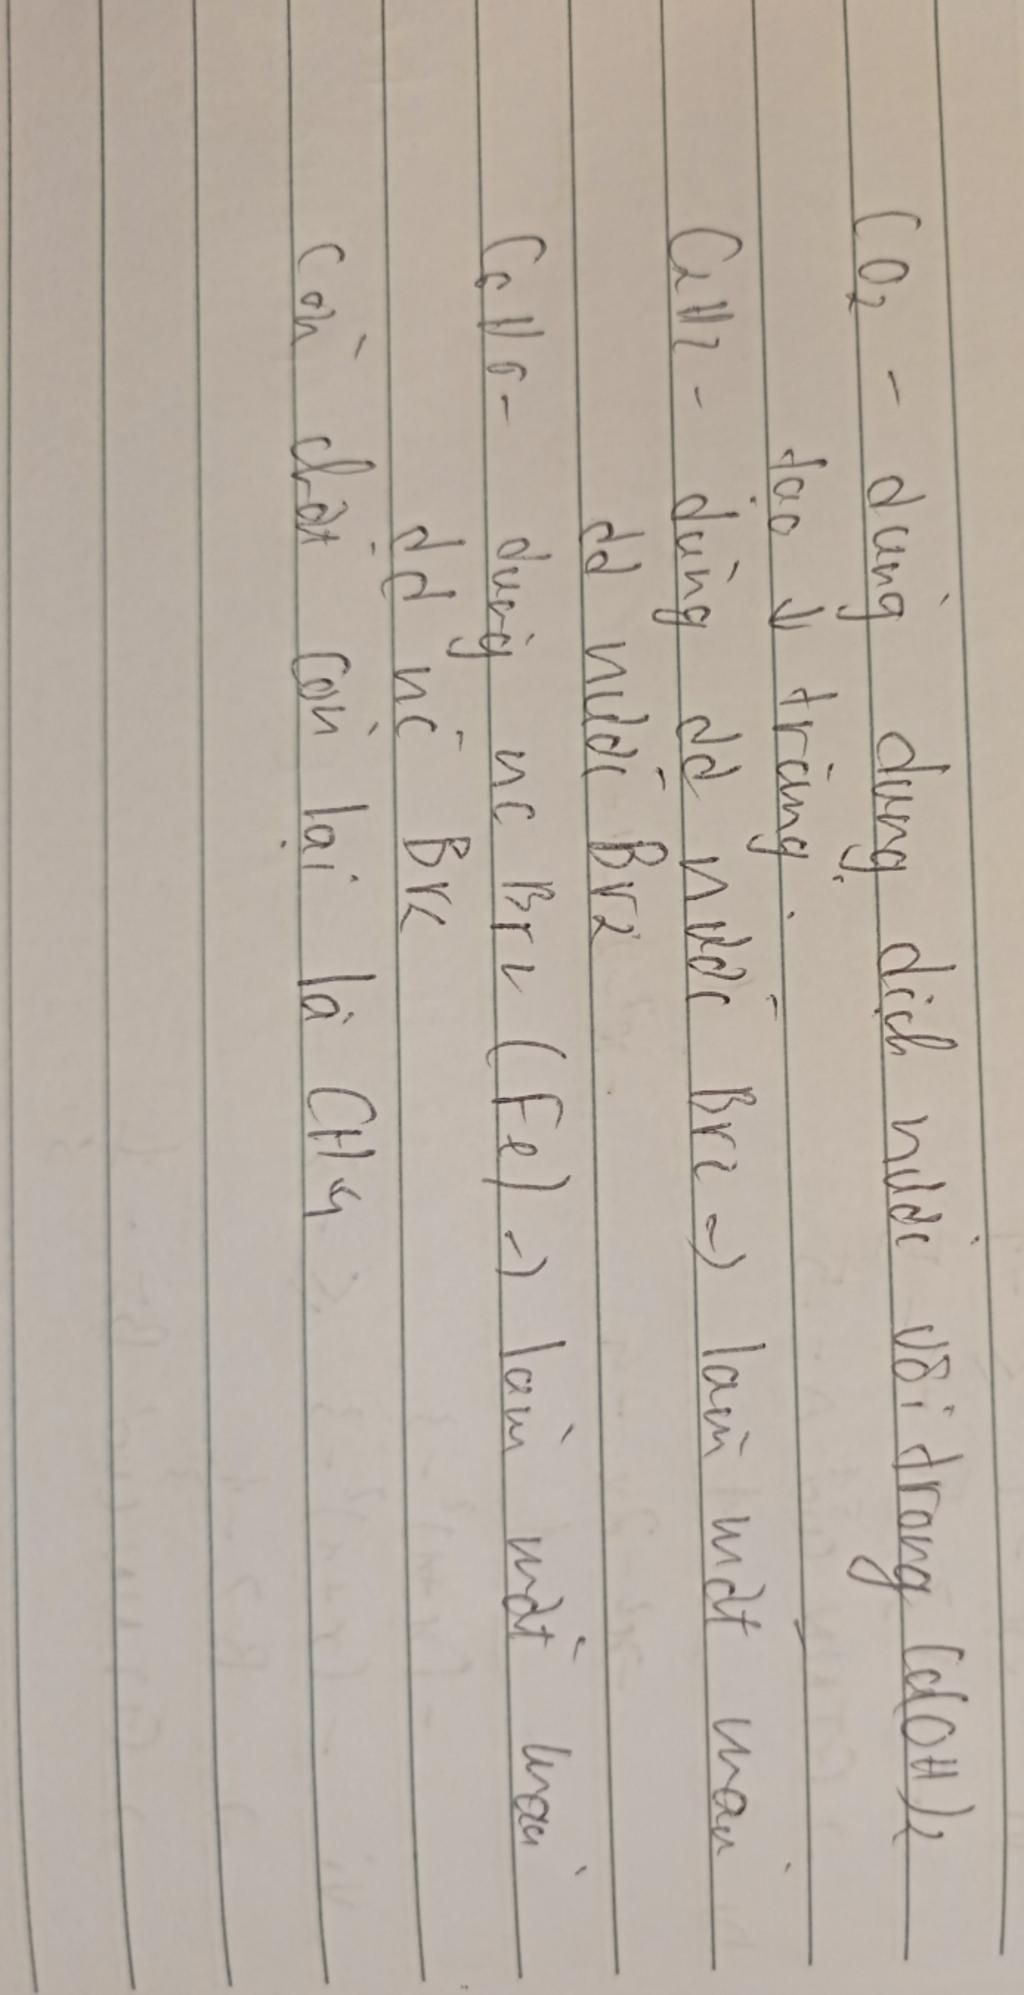 CO2 - dùng dung dịch nước vôi trong Ca(OH)2
tạo ↓ trắng.
C2H2 - dùng dd nước Br2 -> làm mất màu
dd nước Br2
C6H6 - dùng nc Br2 (Fe) -> làm mất màu
dd nc Br2
Còn chất còn lại là CH4